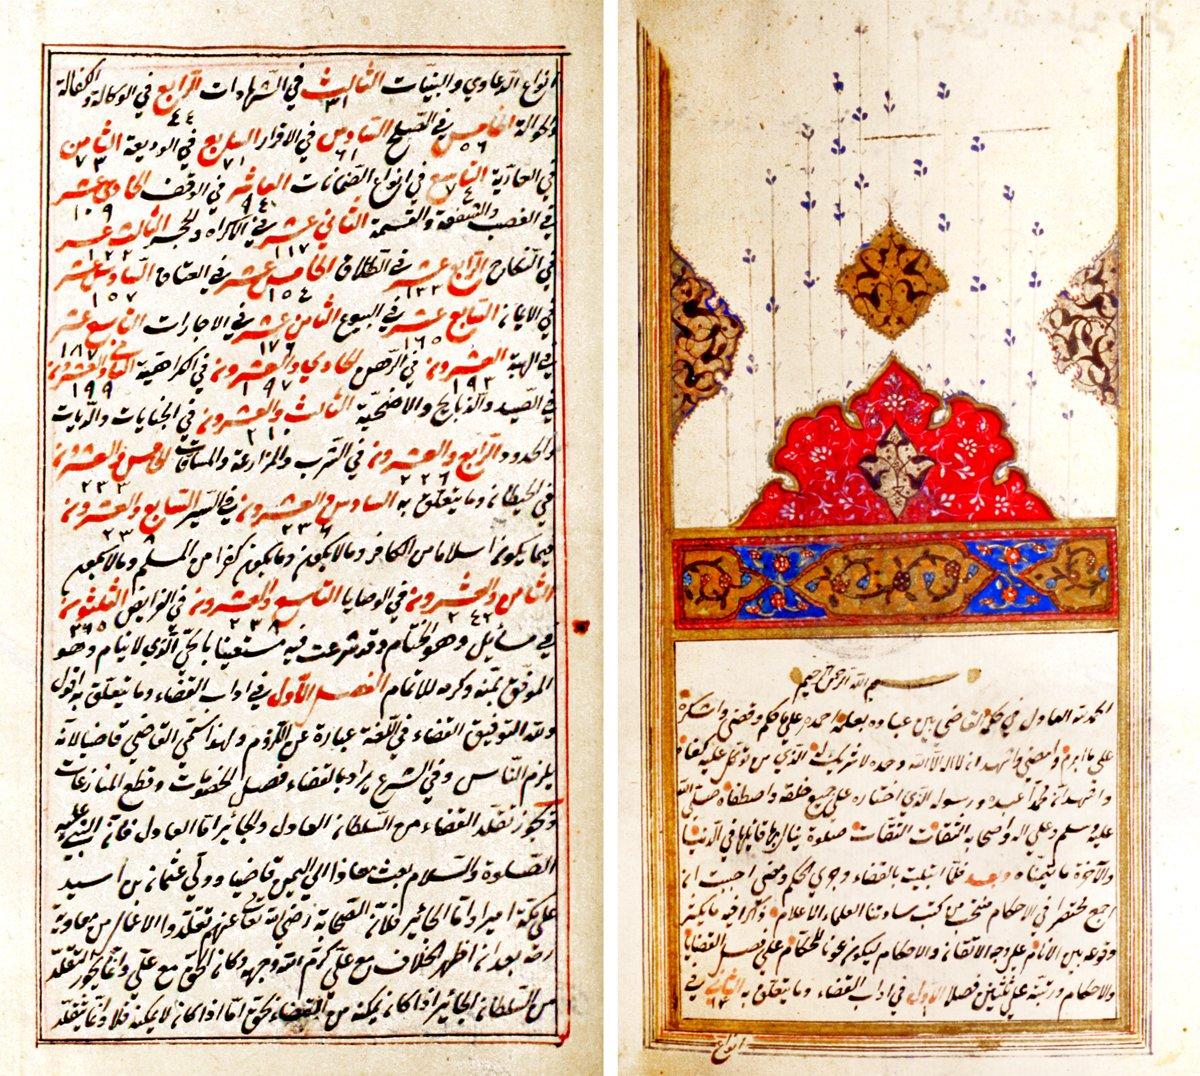 بسم الله الرحمن الرحيم
الحمد لله العادل في حكمه القاضي بين عباده بعلمه احمده على ما حكم وقضى واشكره
على ما ابرم وامضى واشهد ان لا اله الا الله وحده لا شريك له الذي من توكل عليه كفاه
واشهد ان محمدا عبده ورسوله الذي اختاره على جميع خلقه واصطفاه صلى الله
عليه وسلم وعلى اله واصحابه الثقات التقات صلوة ينال بها قائلها في الدنيا
والآخرة ما يتمناه وبعد فلما ابتليت بالقضاء وجرى الحكم ومضى احببت ان
اجمع مختصرا في الاحكام منتخبا من كتب سادتنا العلماء الاعلام ذاكرا فيه ما يكثر
وقوعه بين الانام على وجه الاتقان والاحكام ليكون عونا للحكام على فصل القضايا
والاحكام ورتبته على ثلثين فصلا الاول في اداب القضاء وما يتعلق به الثاني في
انواع
انواع الدعاوي والبينات الثالث في الشهادات الرابع في الوكالة والكفالة
٣١ ٤٤
والحوالة الخامس في الصلح السادس في الاقرار السابع في الوديعة الثامن
٥٦ ٦١ ٧١ ٧٣
في العارية التاسع في انواع الضمانات العاشر في الوقف الحادي عشر
٧٤ ٩٤ ١٠٩
في الغصب والشفعة والقسمة الثاني عشر في الاكراه والحجر الثالث عشر
١١٧ ١٢٢
في النكاح الرابع عشر في الطلاق الخامس عشر في العتاق السادس عشر
١٣٢ ١٥٤ ١٥٧
في الايمان السابع عشر في البيوع الثامن عشر في الاجارات التاسع عشر
١٦٥ ١٧٦ ١٨٧
في الهبة العشرون في الرهن الحادي والعشرون في الكراهية الثاني والعشرون
١٩٣ ١٩٧ ١٩٩
في الصيد والذبائح والاضحية الثالث والعشرون في الجنايات والديات
٢١٠
والحدود الرابع والعشرون في الشرب والمزارعة والمساقات الخامس والعشرون
٢٢٦ ٢٣٣
في الحيطان وما يتعلق به السادس والعشرون في السير السابع والعشرون
فيما يكون اسلاما من الكافر وما لا يكون وما يكون كفرا من المسلم وما لا يكون
الثامن والعشرون في الوصايا التاسع والعشرون في الفرايض الثلثون
في مسائل وهو الختام وقد شرعت فيه مستعينا بالحي الذي لا ينام وهو
الموفق بمنه وكرمه للاتمام الفصل الاول في اداب القضاء وما يتعلق به اقول
وبالله التوفيق القضاء في اللغة عبارة عن اللزوم ولهذا سمي القاضي قاضيا لانه
يلزم الناس وفي الشرع يراد بالقضاء فصل الخصومات وقطع المنازعات
ويجوز تقلد القضاء من السلطان العادل والجائر اما العادل فلان النبي عليه
الصلوة والسلام بعث معاذا الى اليمن قاضيا وولي عثمان بن اسيد
على مكة اميرا واما الجائر فلان الصحابة رضي الله تعالى عنهم تقلدوا الاعمال من معاوية
رضه بعد ان اظهر الخلاف مع علي كرم الله وجهه وكان الحق مع علي وانما يجوز التقلد
من السلطان الجائر اذا كان يمكنه من القضاء بحق اما اذا كان لا يمكنه فلا وانما يتقلد